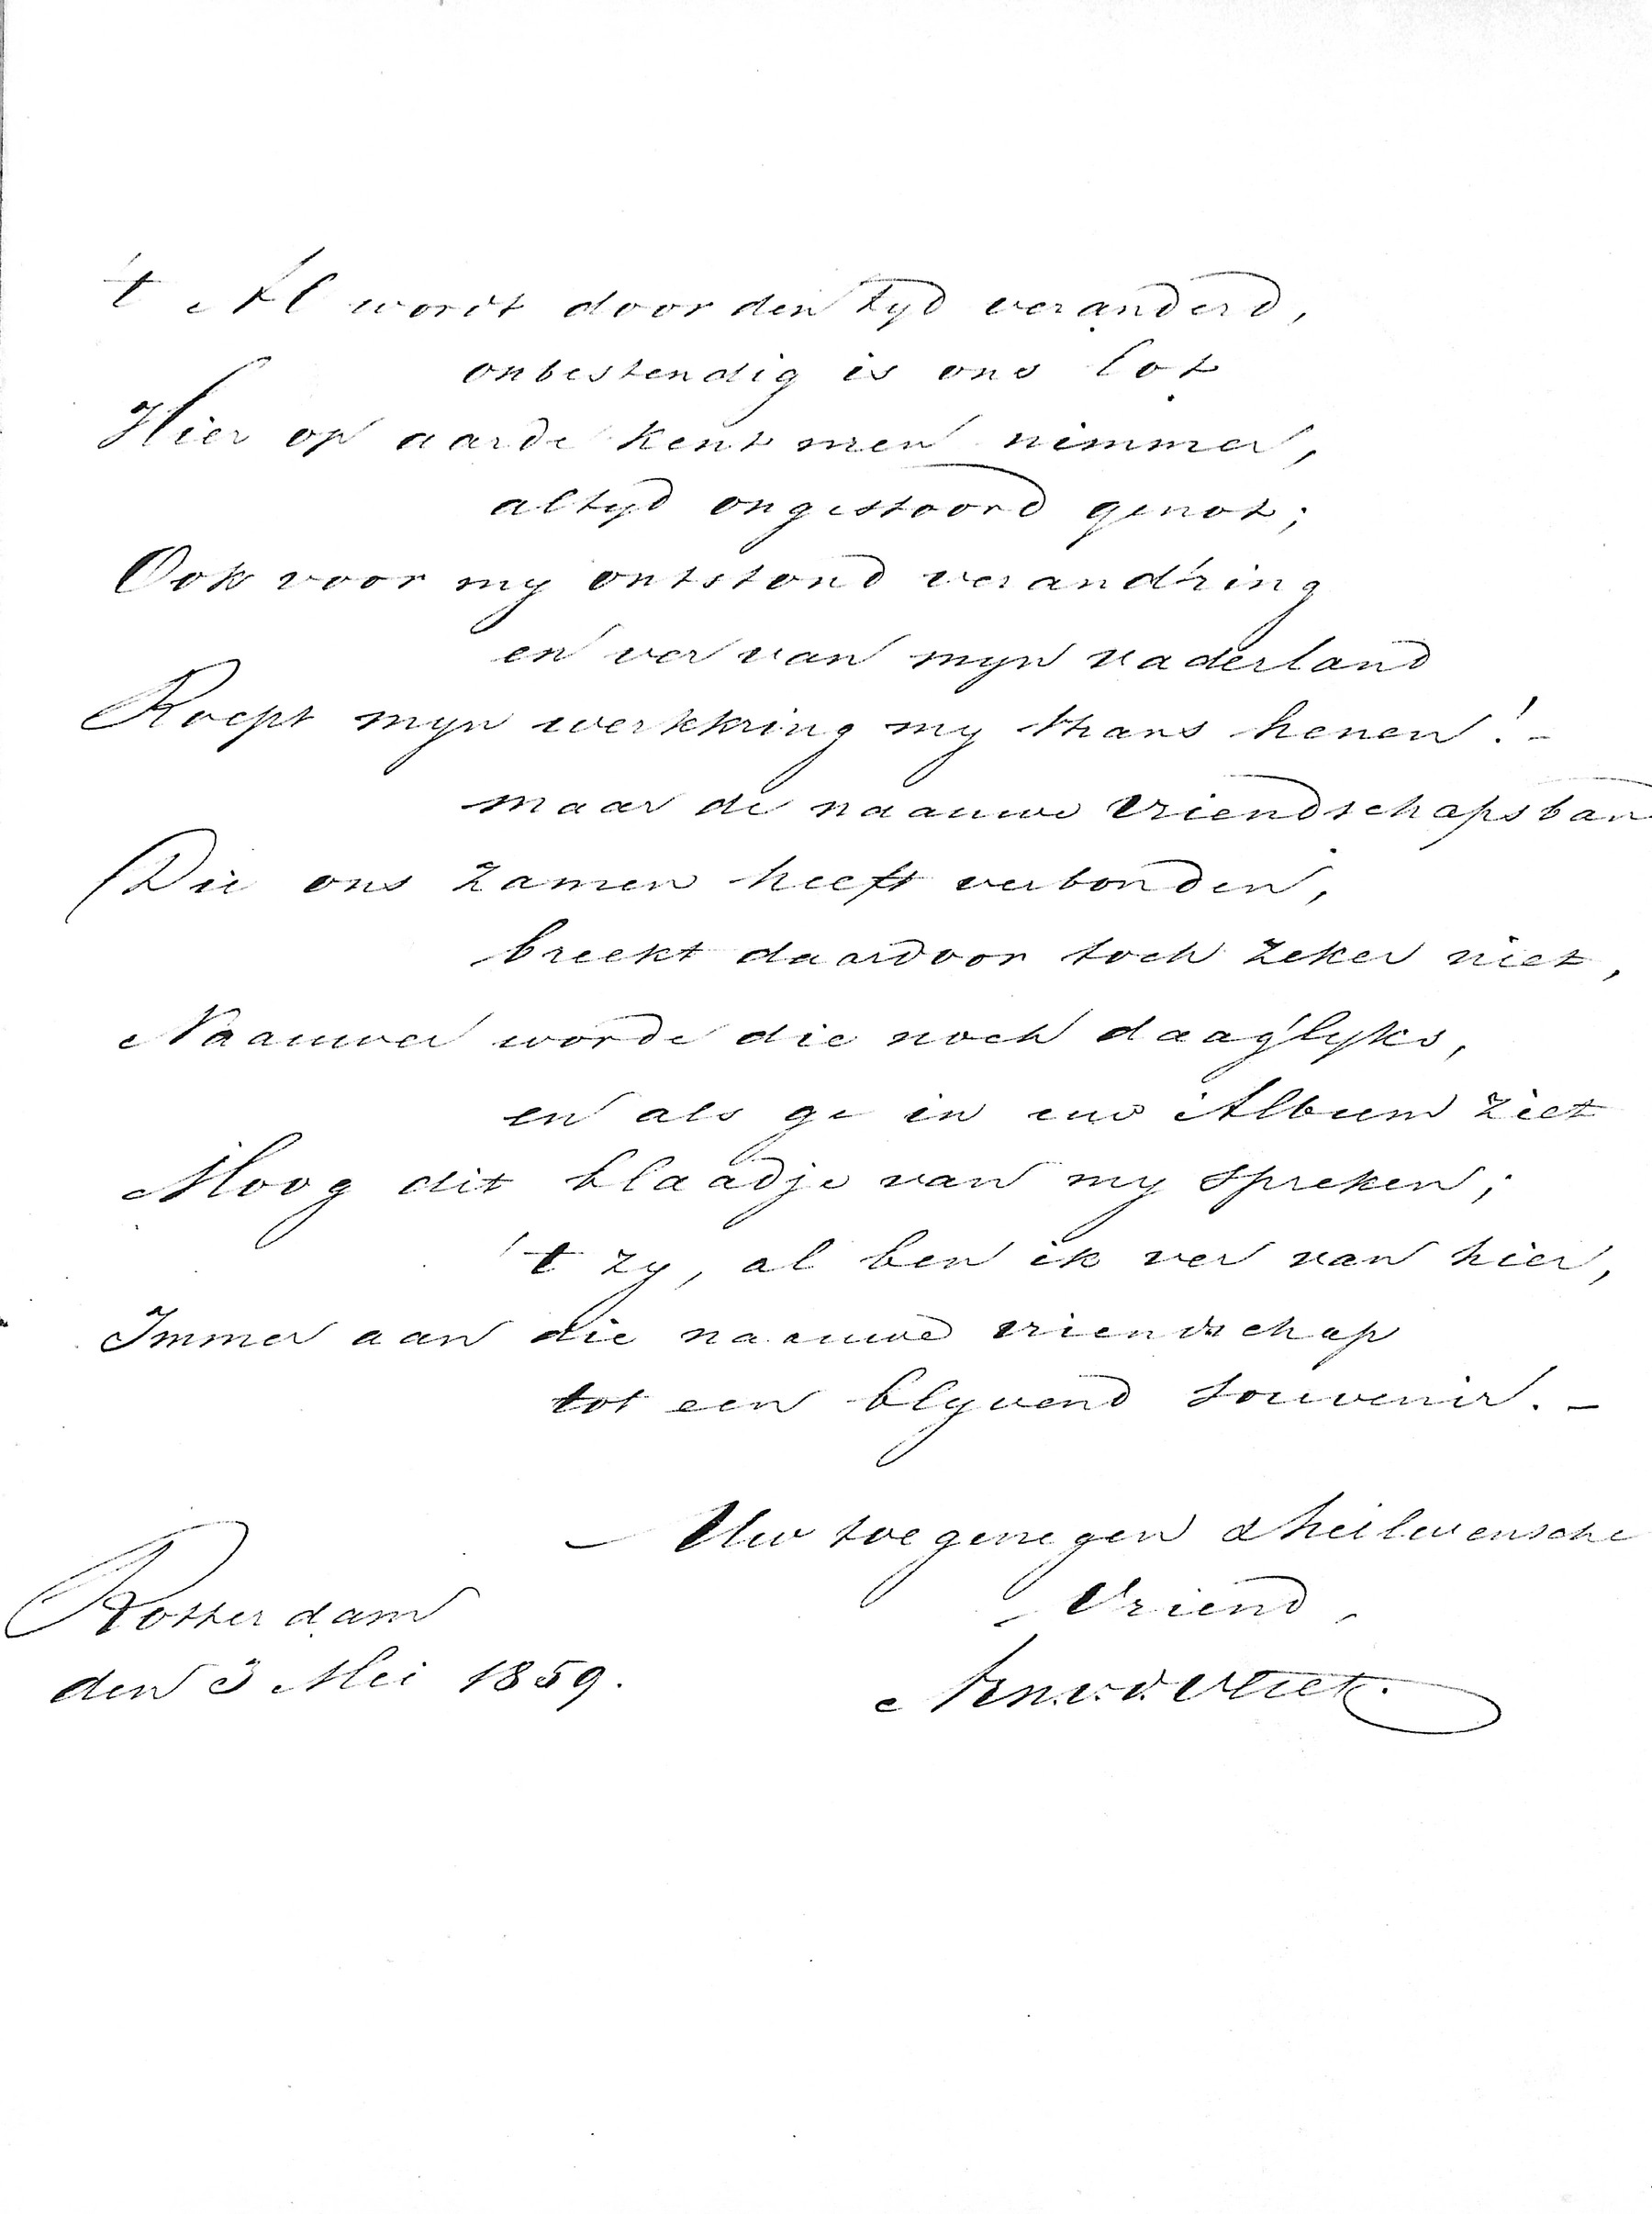 't Al wordt door den tyd veranderd,
onbestendig is ons lot
Hier op aarde kent men nimmer,
altyd ongestoord genot;
Ook voor my ontstond verand'ring
en ver van myn vaderland
Roept myn werkkring my thans henen! -
maar de naauwe vriendschapsban
Die ons zamen heeft verbonden,
breekt daardoor toch zeker niet,
Naauwer worde die noch daag'lyks,
en als ge in uw Album ziet
Moog dit blaadje van my spreken;
't zy, al ben ik ver van hier,
Immer aan die naauwe vriendschap
tot een blyvend souvenir. -
- Uw toegenegen & heilwensche
Vriend,
Rotterdam
den 3 Mei 1859.
v. d. Vliet.